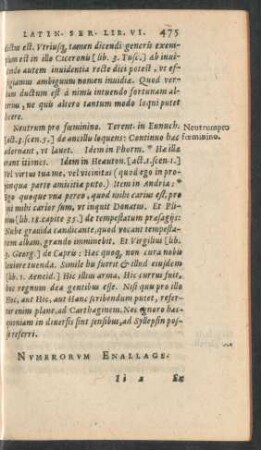 LATIN. SER. LIB. VI. 475
ctus est. Vtriusq, tamen dicendi generis exem
plum est in illo Ciceronis [lib. 3. Tusc.] ab inui
dendo autem inuidentia recte dici potest, vt ef
fugiamus ambiguum nomen inuidiæ. Quod ver
bum ductum est à nimis intuendo fortunam al
terius, ne quis altero tantum modo loqui putet
licere.
Neutrum pro fœminino. Terent. in Eunuch.
[act. 3. scen. 5.] de ancillis loquens: Continuo hæc
adornant, vt lauet. Idem in Phorm. * Hæ illa
erant itiones. Idem in Heauton. [act. 1. scen. 1.]
Vel virtus tua me, vel vicinitas (quod ego in pro-
pinqua parte amicitiæ puto.) Item in Andria: *
Ego quoque vna pereo, quod mihi carius est, pro
qui mihi carior sum, vt inquit Donatus. Et Pli-
nius [lib. 18. capite 35.] de tempestatum præsagijs:
Nube grauida candicante, quod vocant tempesta-
tem albam, grando imminebit. Et Virgilius [lib.
3. Georg.] de Capris: Hæc quoq, non cura nobis
leuiore tuenda. Simile his fuerit & illud eiusdem
[lib. 1. Aeneid.] Hic illius arma, Hic currus fuit,
hic regnum dea gentibus esse. Nisi quis pro illo
Hoc, aut Hic, aut Hanc scribendum putet, refer-
tur enim planè, ad Carthaginem. Nec ignoro hæc,
quoniam in diuersis sint sensibus, ad Syllepsin pos
se referri.
Neutrum pro
fœminino.
NVMERORVM ENALLAGE.
Ii 2 Se